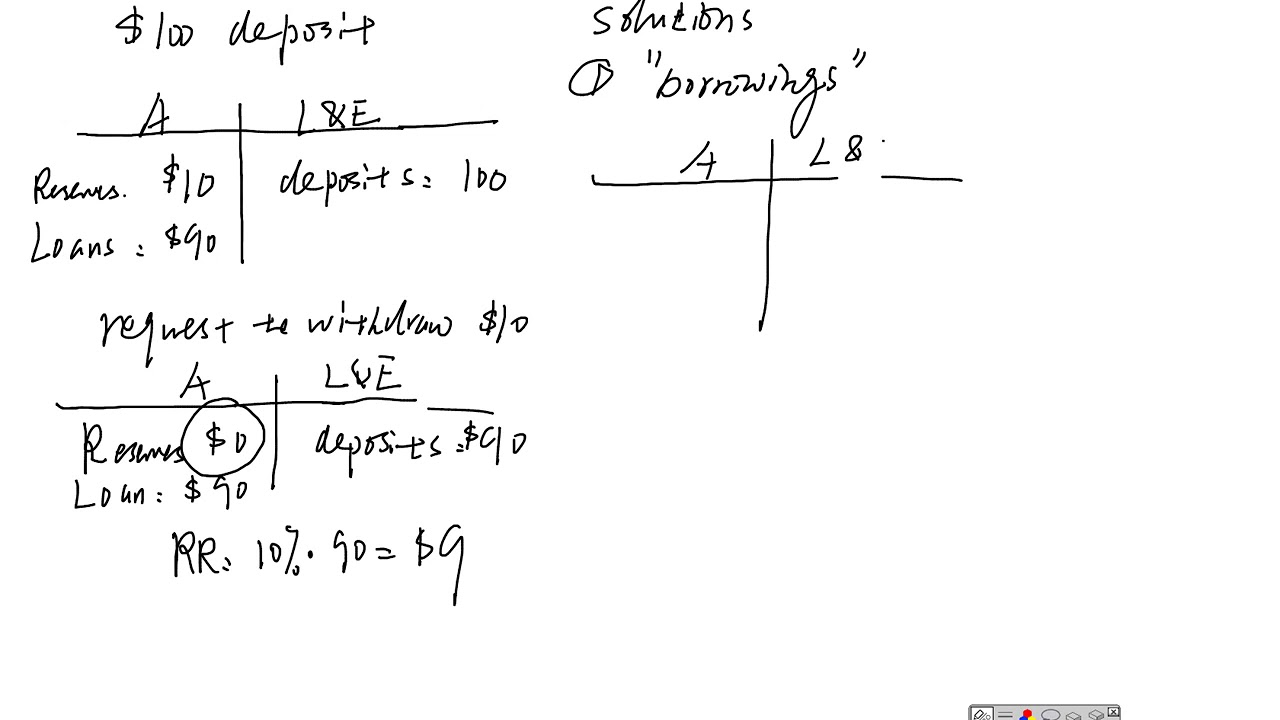 $100 deposit
A L&E
Reserves. $10 deposits: 100
Loans: $90
request to withdraw $10
A L&E
Reserves $0 deposits: $90
Loan: $90
RR: 10% · 90 = $9
Solutions
① "borrowings"
A L &